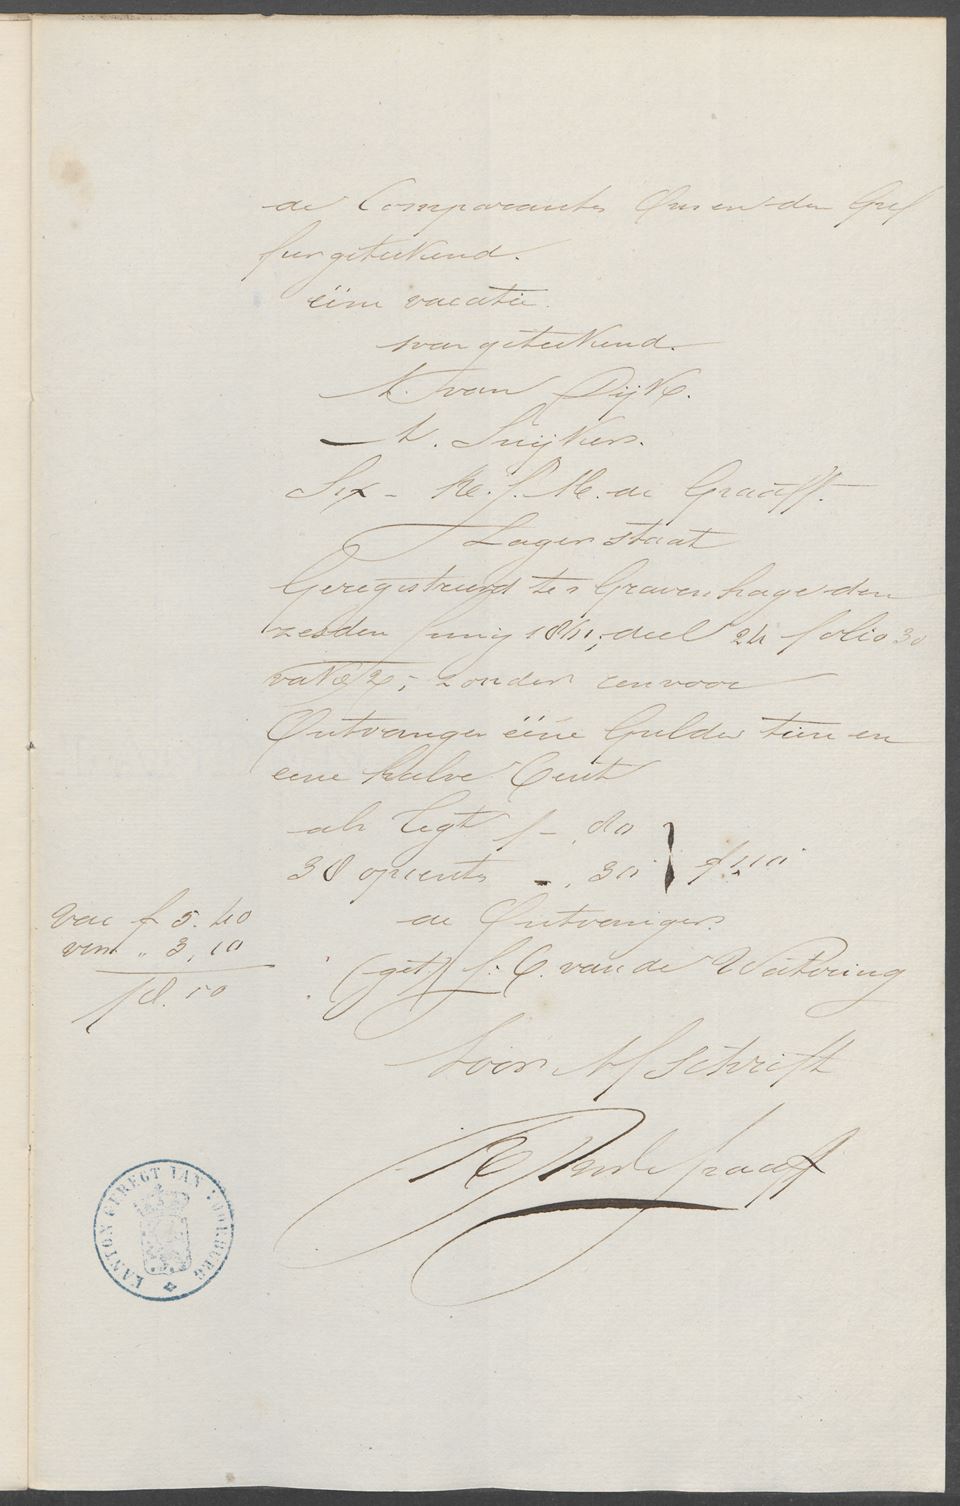 de Comparanten Ons en den Grif
fier geteekend.
ééne vacatie.
was geteekend.
A. van Dijk.
A. Suijkers.
Six - K. J. M. de Graaff.
Lagerstaat
Geregistreerd te s Gravenhage den
zesden Junij 1841, deel 24 folio 30
vak 2; zonder renvooi
Ontvangen ééne Gulden tien en
eene halve Cent
als regt f - 80
38 opcents - 30
de Ontvanger
(get) J. C. van de Watering
Voor Afschrift
de Graaff
Vac f 5.40
3,10
f 8.50
KANTON GEREGT VAN VOORBURG